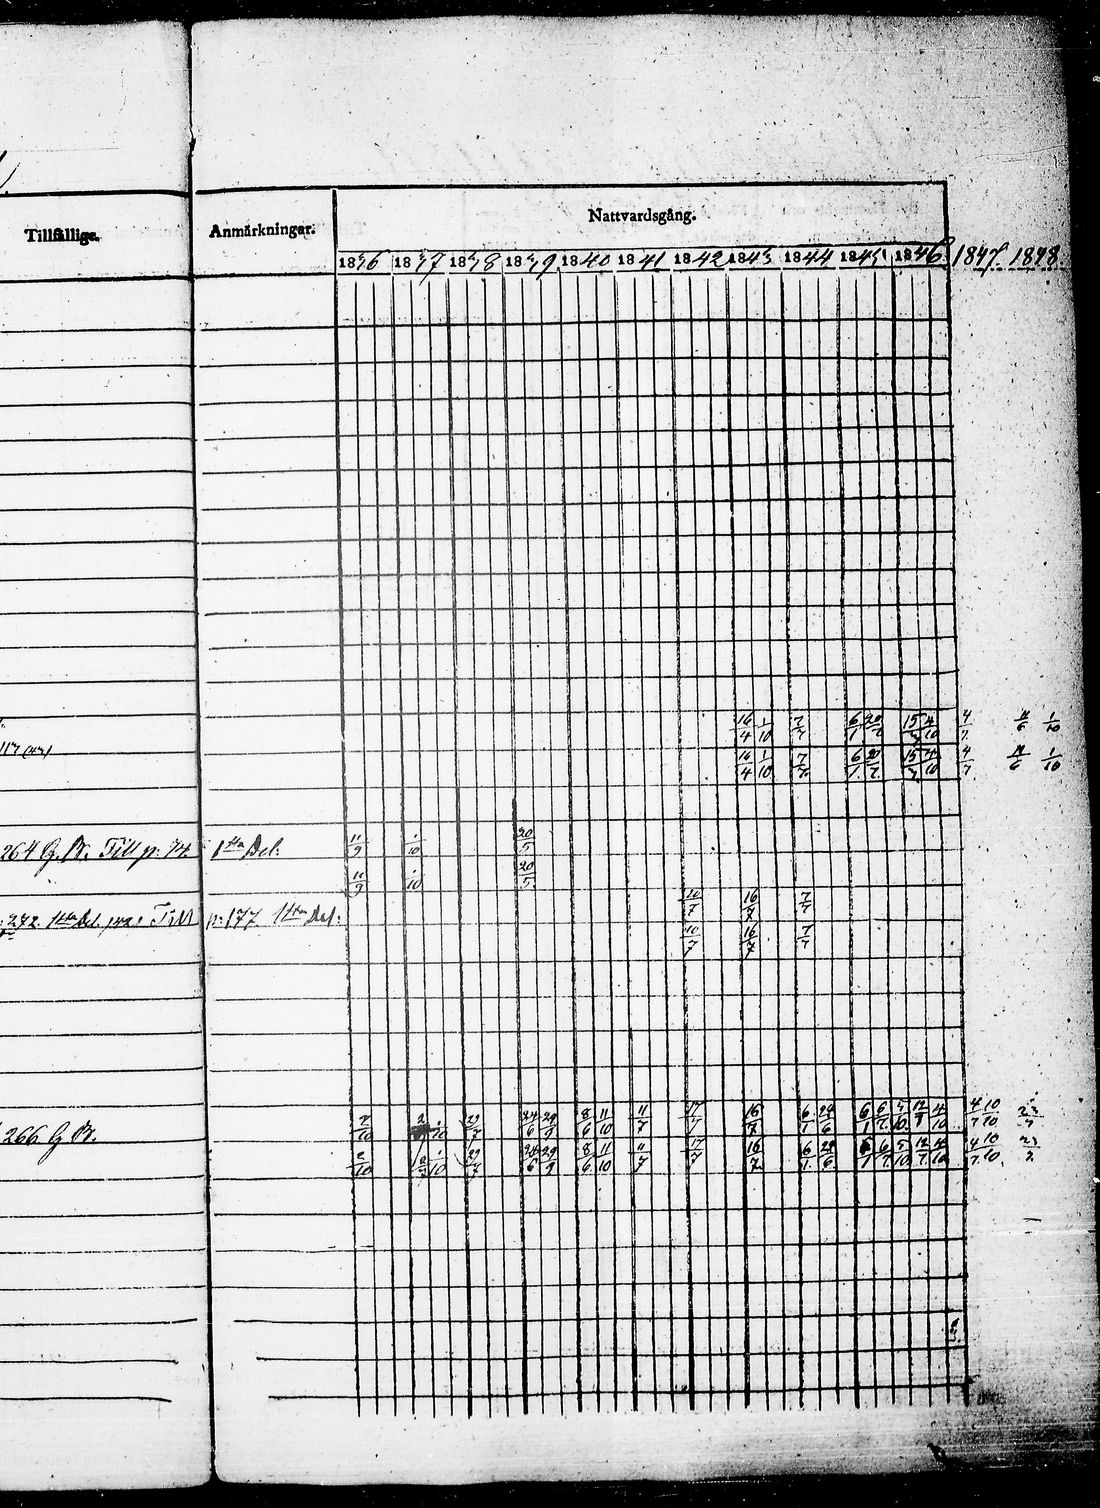 Tillfällige. Anmärkningar. Nattvardsgång.
1836 1837 1838 1839 1840 1841 1842 1843 1844 1845 1846 1847. 1848.
16/4 1/10 7/7 6/1 20/7 15/7 4/10 4/7 11/6 1/10
16/4 1/10 7/7 6/1 20/7 15/7 4/10 4/7 11/6 1/10
264 G. B. Till p: 74. 1sta Del. 11/9 1/10 20/5
11/9 1/10 20/5
272. 1sta Del. Till p: 177. 1sta Del: 10/7 16/7 7/7
10/7 16/7 7/7
266 G B. 2/10 2/7 1/10 29/7 24/6 29/9 8/6 11/10 11/7 17/7 16/7 6/1 24/6 6/1 6/7 5/10 12/7 4/10 4/7 10/10 23/7
2/10 1/10 29/7 24/6 29/9 8/6 11/10 11/7 17/7 16/7 6/1 24/6 6/1 6/7 5/10 12/7 4/10 4/7 10/10 23/7